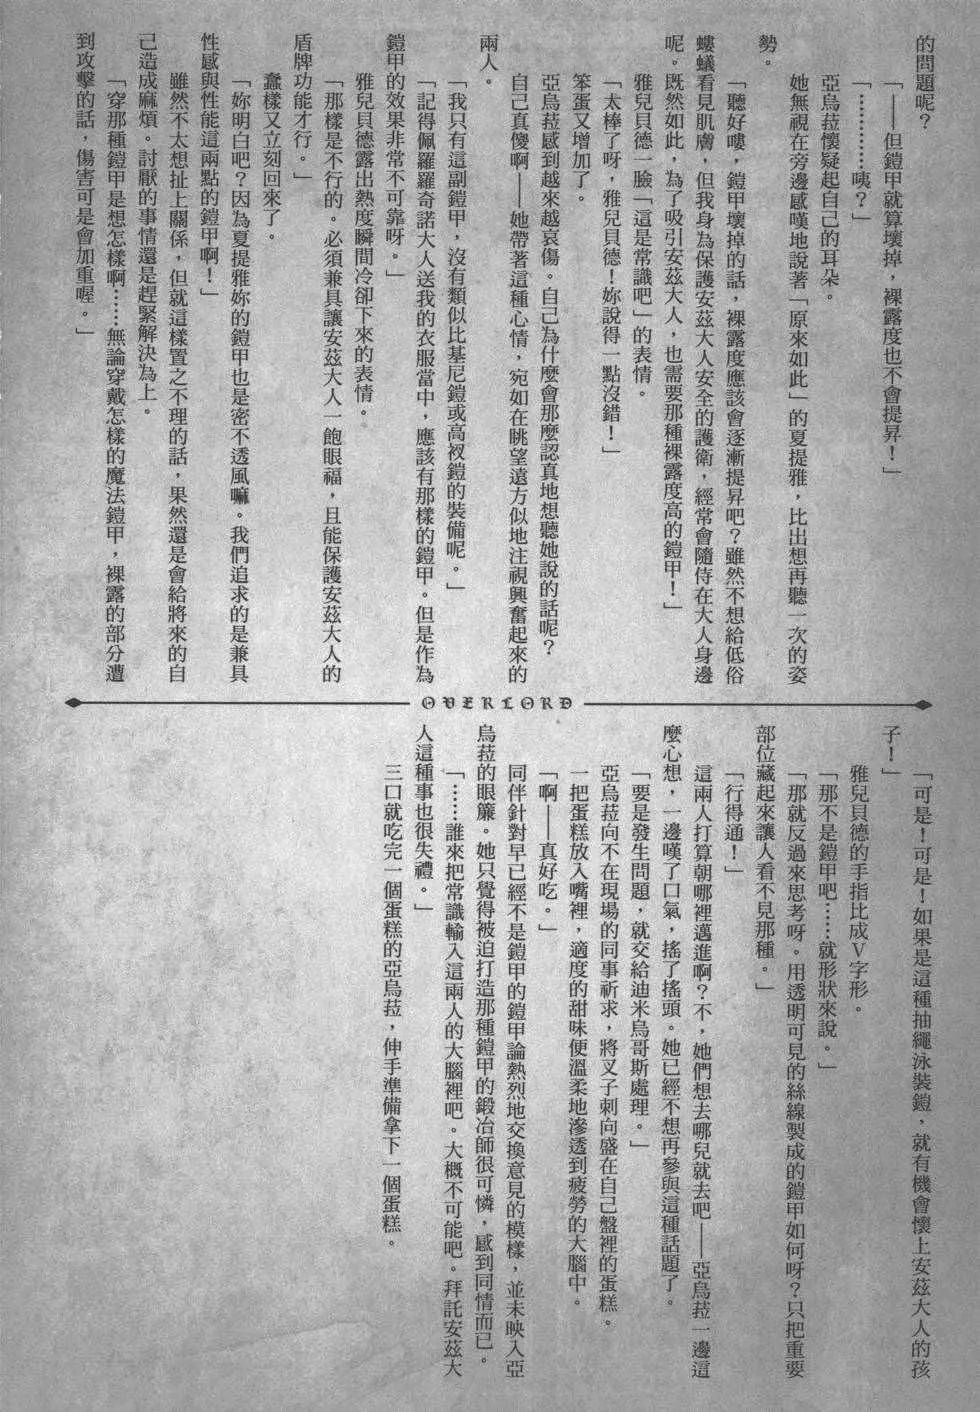 的問題呢?
「——但鎧甲就算壞掉,裸露度也不會提昇!」
「…………咦?」
亞烏菈懷疑起自己的耳朵。
她無視在旁邊感嘆地說著「原來如此」的夏提雅,比出想再聽一次的姿
勢。
「聽好嘍,鎧甲壞掉的話,裸露度應該會逐漸提昇吧?雖然不想給低俗
螻蟻看見肌膚,但我身為保護安茲大人安全的護衛,經常會隨侍在大人身邊
呢。既然如此,為了吸引安茲大人,也需要那種裸露度高的鎧甲!」
雅兒貝德一臉「這是常識吧」的表情。
「太棒了呀,雅兒貝德!妳說得一點沒錯!」
笨蛋又增加了。
亞烏菈感到越來越哀傷。自己為什麼會那麼認真地想聽她說的話呢?
自己真傻啊——她帶著這種心情,宛如在眺望遠方似地注視興奮起來的
兩人。
「我只有這副鎧甲,沒有類似比基尼鎧或高衩鎧的裝備呢。」
「記得佩羅羅奇諾大人送我的衣服當中,應該有那樣的鎧甲。但是作為
鎧甲的效果非常不可靠呀。」
雅兒貝德露出熱度瞬間冷卻下來的表情。
「那樣是不行的。必須兼具讓安茲大人一飽眼福,且能保護安茲大人的
盾牌功能才行。」
蠢樣又立刻回來了。
「妳明白吧?因為夏提雅妳的鎧甲也是密不透風嘛。我們追求的是兼具
性感與性能這兩點的鎧甲啊!」
雖然不太想扯上關係,但就這樣置之不理的話,果然還是會給將來的自
己造成麻煩。討厭的事情還是趕緊解決為上。
「穿那種鎧甲是想怎樣啊……無論穿戴怎樣的魔法鎧甲,裸露的部分遭
到攻擊的話,傷害可是會加重喔。」
OVERLORD
「可是!可是!如果是這種抽繩泳裝鎧,就有機會懷上安茲大人的孩
子!」
雅兒貝德的手指比成V字形。
「那不是鎧甲吧……就形狀來說。」
「那就反過來思考呀。用透明可見的絲線製成的鎧甲如何呀?只把重要
部位藏起來讓人看不見那種。」
「行得通!」
這兩人打算朝哪裡邁進啊?不,她們想去哪兒就去吧——亞烏菈一邊這
麼心想,一邊嘆了口氣,搖了搖頭。她已經不想再參與這種話題了。
「要是發生問題,就交給迪米烏哥斯處理。」
亞烏菈向不在現場的同事祈求,將叉子刺向盛在自己盤裡的蛋糕。
一把蛋糕放入嘴裡,適度的甜味便溫柔地滲透到疲勞的大腦中。
「啊——真好吃。」
同伴針對早已經不是鎧甲的鎧甲論熱烈地交換意見的模樣,並未映入亞
烏菈的眼簾。她只覺得被迫打造那種鎧甲的鍛冶師很可憐,感到同情而已。
「……誰來把常識輸入這兩人的大腦裡吧。大概不可能吧。拜託安茲大
人這種事也很失禮。」
三口就吃完一個蛋糕的亞烏菈,伸手準備拿下一個蛋糕。